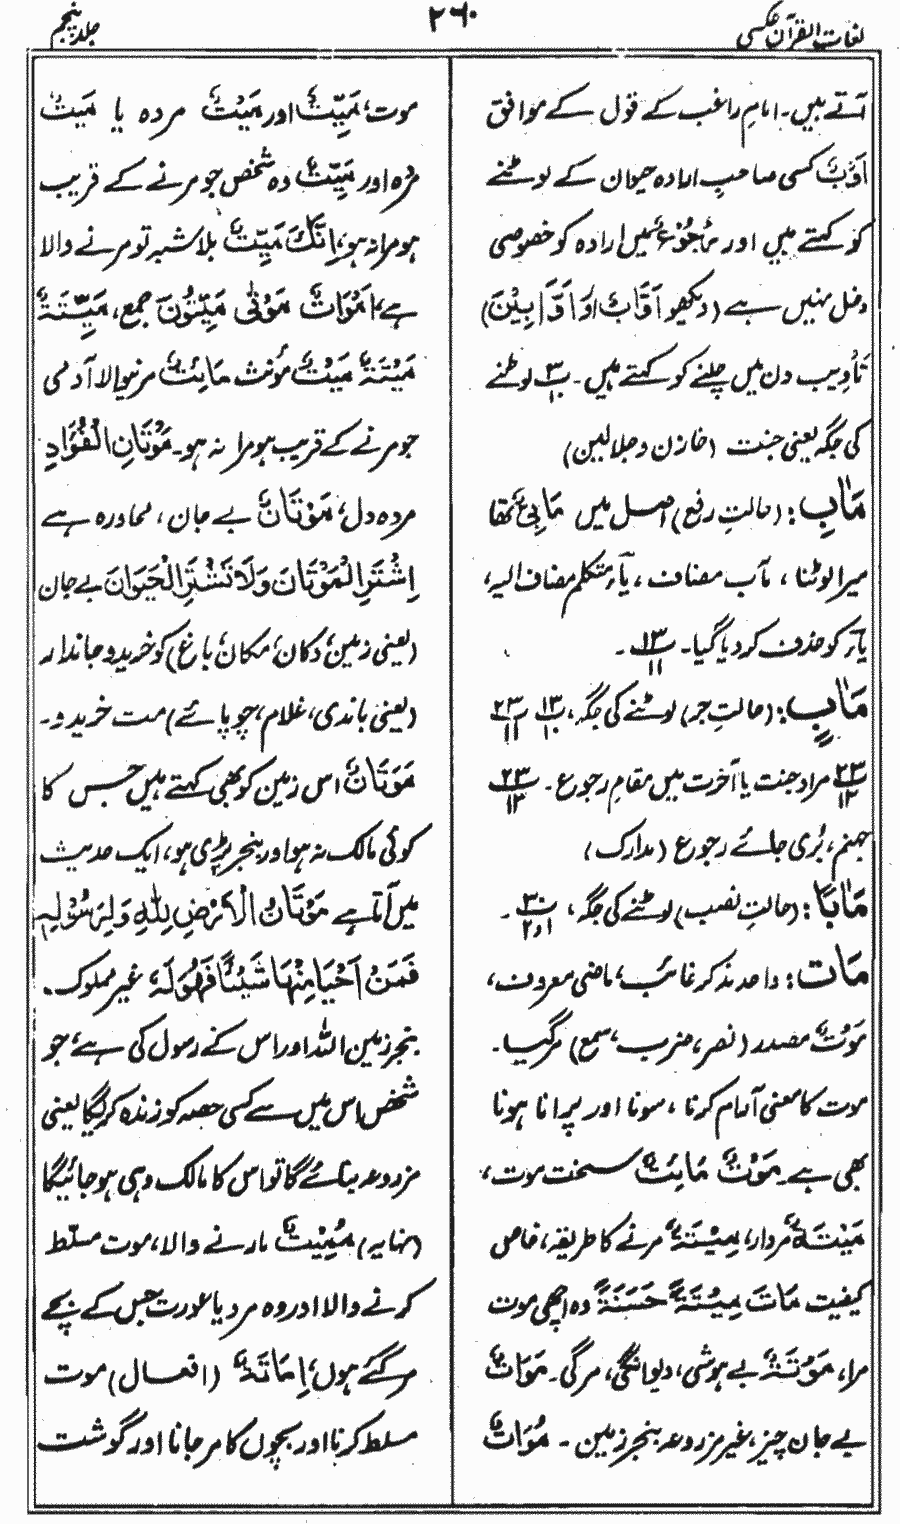 لغات القرآن عکسی
۲۶۰
جلد پنجم
آتے ہیں۔ امام راغب کے قول کے موافق
اَوْبٌ کسی صاحبِ ارادہ حیوان کے لوٹنے
کو کہتے ہیں اور رُجُوْعٌ میں ارادہ کو خصوصی
دخل نہیں ہے (دیکھو اَوَّابٌ اور اَوَّابِیْنَ)
تأدیب دن میں چلنے کو کہتے ہیں۔ ۳/۱۰ لوٹنے
کی جگہ یعنی جنت (خازن و جلالین)
مَاٰبِ: (حالتِ رفع) اصل میں مَاٰبِیْ تھا
میرا لوٹنا، مآب مضاف، یآء متکلم مضاف الیہ،
یآء کو حذف کر دیا گیا۔ ۱۳/۱۱ ۔
مَاٰبٍ: (حالتِ جر) لوٹنے کی جگہ، ۱۳/۱۰ ۲۳/۱۱
۲۳/۱۲ مراد جنت یا آخرت میں مقامِ رجوع۔ ۲۳/۱۳
جہنم، بُری جائے رجوع (مدارک)
مَاٰبًا: (حالتِ نصب) لوٹنے کی جگہ، ۳۰/۱و۲ ۔
مَاتَ: واحد مذکر غائب، ماضی معروف،
مَوْتٌ مصدر (نصر، ضرب، سمع) مر گیا۔
موت کا معنی آرام کرنا، سونا اور پرانا ہونا
بھی ہے۔ مَوْتٌ مَائِتٌ سخت موت،
مَیْتَةٌ مردار، مِیْتَةٌ مرنے کا طریقہ، خاص
کیفیت مَاتَ مِیْتَةً حَسَنَةً وہ اچھی موت
مرا، مَوْتَةٌ بے ہوشی، دیوانگی، مرگی۔ مَوَاتٌ
بے جان چیز، غیر مزروعہ بنجر زمین۔ مُوَاتٌ
موت، مَیِّتٌ اور مَیْتٌ مردہ یا مَیْتٌ
مردہ اور مَیِّتٌ وہ شخص جو مرنے کے قریب
ہو مرا نہ ہو، اِنَّكَ مَیِّتٌ بلا شبہ تو مرنے والا
ہے، اَمْوَاتٌ مَوْتٰی مَیِّتُوْنَ جمع، مَیِّتَةٌ
مَیْتَةٌ مَیْتٌ مؤنث مَائِتٌ مرنیوالا آدمی
جو مرنے کے قریب ہو مرا نہ ہو۔ مَوْتَانِ الْفُؤَادِ
مردہ دل، مَوْتَانٌ بے جان، محاورہ ہے
اِشْتَرِ الْمَوْتَانَ وَلَا تَشْتَرِ الْحَیَوَانَ بے جان
(یعنی زمین، دکان، مکان، باغ) کو خریدو جاندار
(یعنی باندی، غلام، چوپائے) مت خریدو۔
مَوَتَانٌ اس زمین کو بھی کہتے ہیں جس کا
کوئی مالک نہ ہو اور بنجر پڑی ہو، ایک حدیث
میں آتا ہے مَوْتَانُ الْاَرْضِ لِلّٰهِ وَلِرَسُوْلِہٖ
فَمَنْ اَحْیَا مِنْهَا شَیْئًا فَهُوَ لَهٗ، غیر مملوک۔
بنجر زمین اللہ اور اس کے رسول کی ہے، جو
شخص اس میں سے کسی حصہ کو زندہ کرلیگا یعنی
مزروعہ بنائے گا تو اس کا مالک وہی ہو جائیگا
(نہایہ) مُمِیْتٌ مارنے والا، موت مسلّط
کرنے والا اور وہ مرد یا عورت جس کے بچے
مر گئے ہوں، اِمَاتَةٌ (افعال) موت
مسلط کرنا اور بچوں کا مر جانا اور گوشت